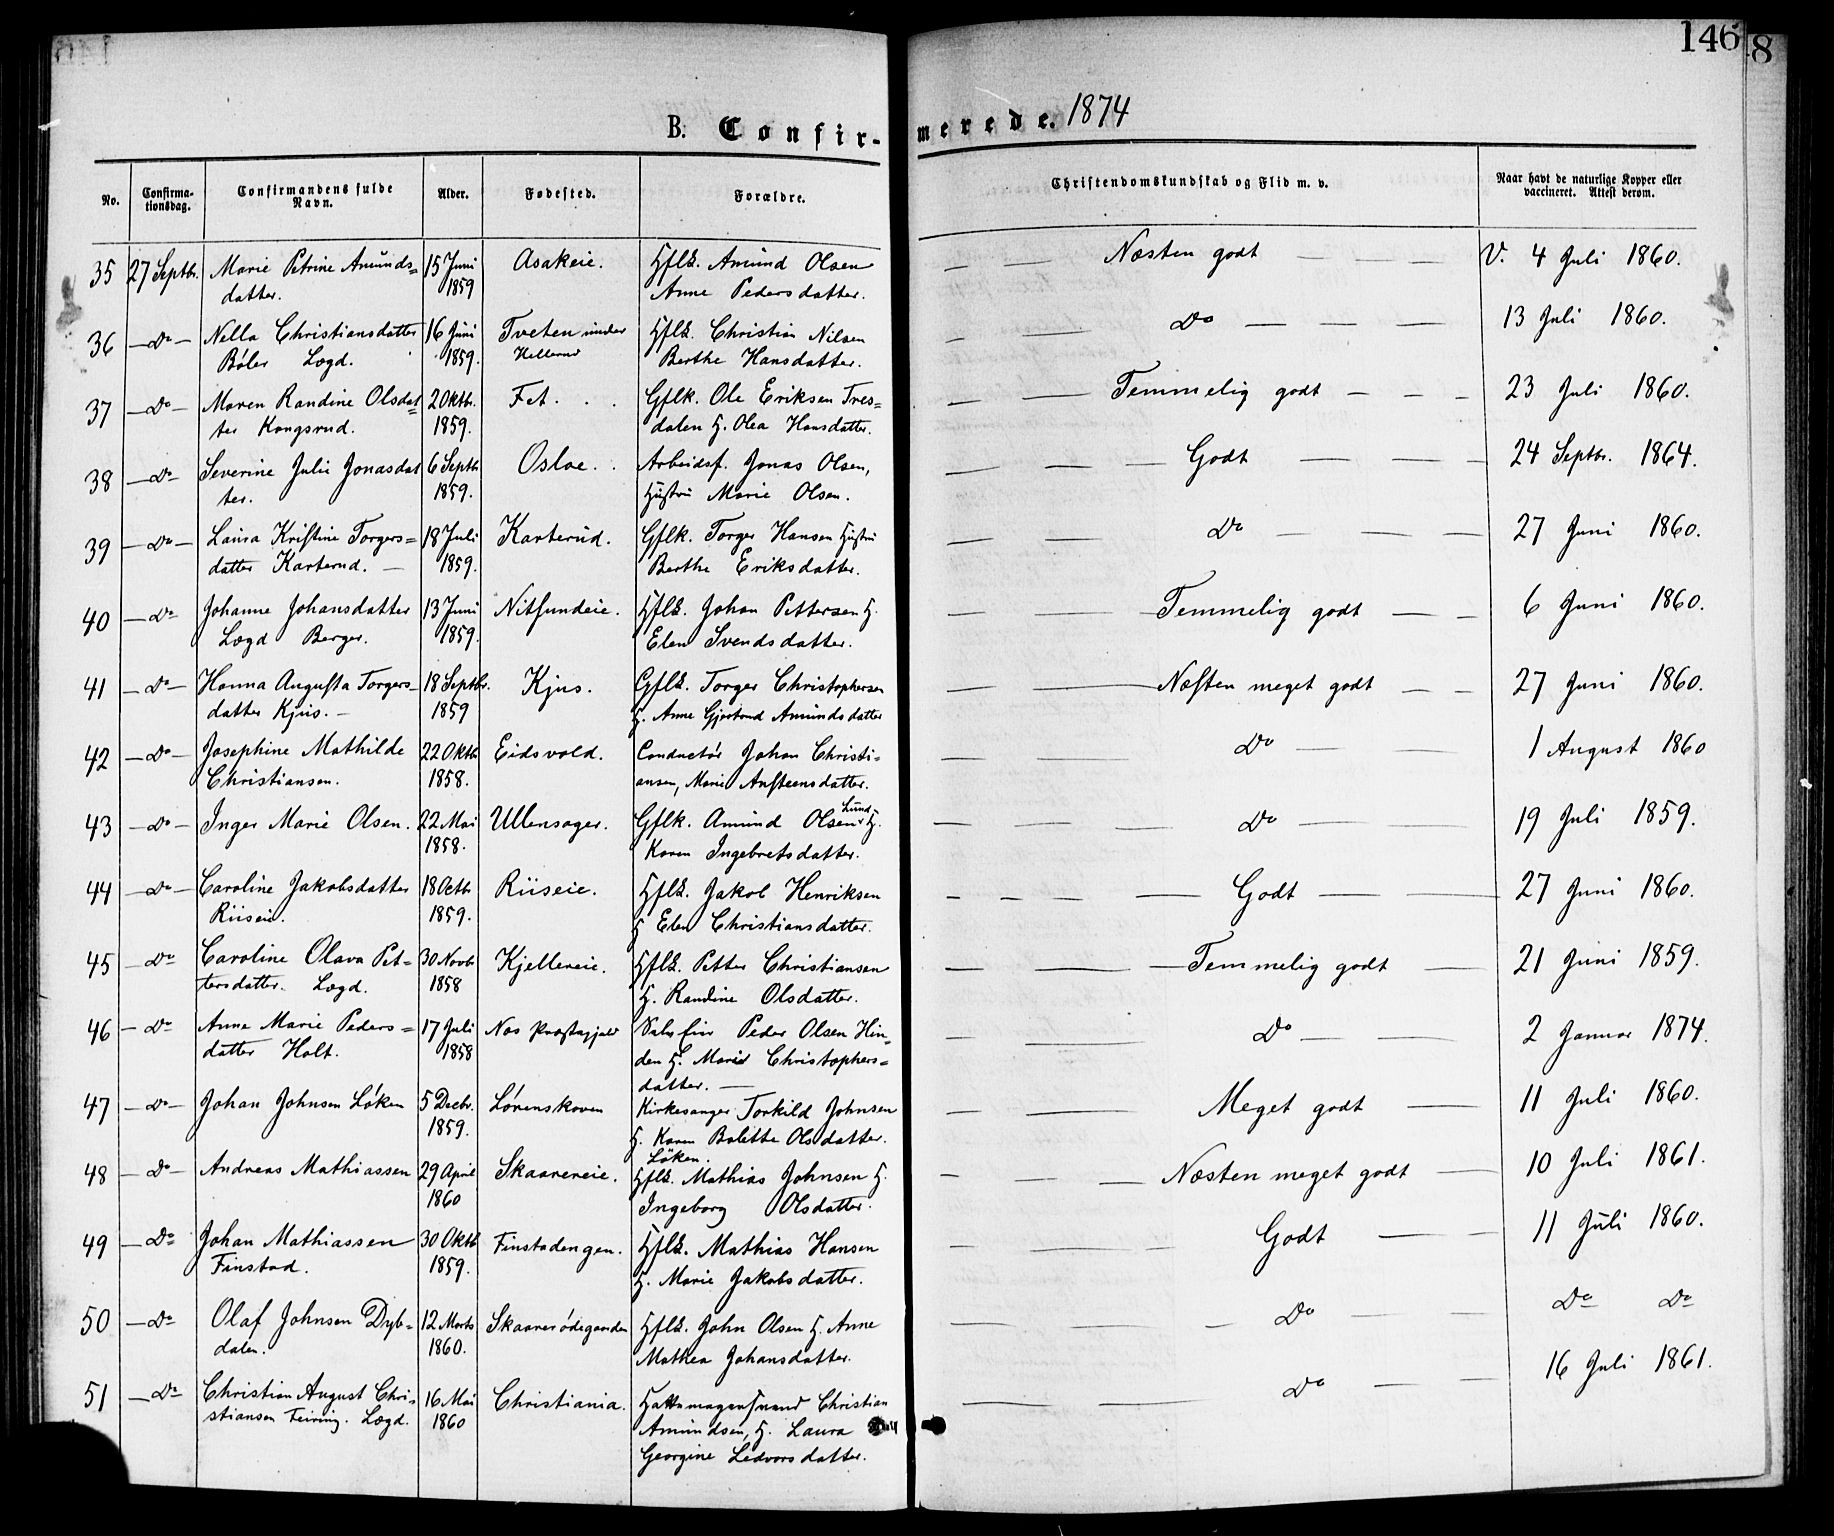 146
8
B. Confir-
merede. 1874
No.
Confirma-
tionsdag.
Confirmandens fulde
Navn.
Alder.
Fødested.
Forældre.
Christendomskundskab og Flid m. v.
Naar havt de naturlige Kopper eller
vaccineret. Attest derom.
35 27 Septbr. Marie Petrine Amunds= 15 Juni Asakeie. Hflk. Amund Olsen — — Næsten godt — — — V. 4 Juli 1860.
datter. 1859 Anne Pedersdatter.
36 — Do — Nella Christiansdatter 16 Juni Tveten under Hflk. Christian Nilsen — — Do — — — 13 Juli 1860.
Bøler Lægd. 1859. Hellerud Berthe Hansdatter.
37 — Do — Maren Randine Olsdat= 2 Oktb. Fet. . . Gflk. Ole Eriksen Tres= — — Temmelig godt — — — 23 Juli 1860.
ter Kongsrud. 1859. dalen H. Olea Hansdatter.
38 — Do — Severine Julie Jonasdat 6 Septb. Osloe. . Arbeidsf. Jonas Olsen, — — — Godt — — — 24 Septbr. 1864.
ter. 1859. Hustru Marie Olsen.
39 — Do — Laura Kristine Torgers= 18 Juli Karterud. Gflk. Torger Hansen Hustru — — Do — — — 27 Juni 1860.
datter Karterud. — 1859. Berthe Eriksdatter.
40 — Do — Johanne Johansdatter 13 Juni Nitsundeie. Hflk. Johan Pettersen H. — — Temmelig godt — — 6 Juni 1860.
Lægd Berger. 1859. Elen Svendsdatter.
41 — Do — Hanna Augusta Torgers- 18 Septbr. Kjus. Gflk. Torger Christophersen — — Næsten meget godt — — 27 Juni 1860.
datter Kjus. — 1859 H. Anne Gjertrud Amundsdatter
42 — Do — Josephine Mathilde 22 Oktb. Eidsvold. Conductør Johan Christi= — — Do — — 1 August 1860
Christiansen. 1858. ansen, Marie Ansteensdatter.
43 — Do — Inger Marie Olsen. 22 Mai Ullensager. Gflk. Amund Olsen Lund H. — — — Do — — 19 Juli 1859.
1858. Karen Ingebretsdatter.
44 — Do — Caroline Jakobsdatter 18 Octb. Riiseie. Hflk. Jakob Henriksen — — — — Godt — — 27 Juni 1860.
Riiseie. 1859. H Elen Christiansdatter.
45 — Do Caroline Olava Pet= 30 Novb. Kjellereie. Hflk. Petter Christiansen — — — Temmelig godt — 21 Juni 1859.
tersdatter. Lægd. 1858 H. Randine Olsdatter.
46 — Do Anne Marie Peders= 17 Juli Nes Præstegjeld Peder Olsen Hin= — — Do — — 2 Januar 1874.
datter Holt. 1858 den H. Marie Christophers=
datter. —
47 — Do — Johan Johnsen Løken 5 Decbr. Lørenskoven Kirkesanger Torkild Johnsen — — Meget godt — 11 Juli 1860.
1859. H. Karen Bolette Olsdatter.
Løken.
48 — Do — Andreas Mathiassen 29 April Skaarereie. Hflk. Mathias Johnsen H. — — — Næsten meget godt — 10 Juli 1861.
1860 Ingeborg Olsdatter.
49 — Do Johan Mathiassen 30 Oktb. Finstadengen. Hflk. Mathias Hansen — — Godt — — 11 Juli 1860.
Finstad. 1859. H. Marie Jakobsdatter.
50 — Do Olaf Johnsen Dyb= 12 Marts Skaarerødegaarden Hflk. John Olsen H. Anne — Do — — Do Do
dalen. 1860. Mathea Johansdatter.
51 — Do Christian August Chri= 16 Mai Christiania. Christian — — Do — — 16 Juli 1861.
stiansen Feiring. Lægd. 1860 Amundsen, H. Laura
Georgine Ledvorsdatter.